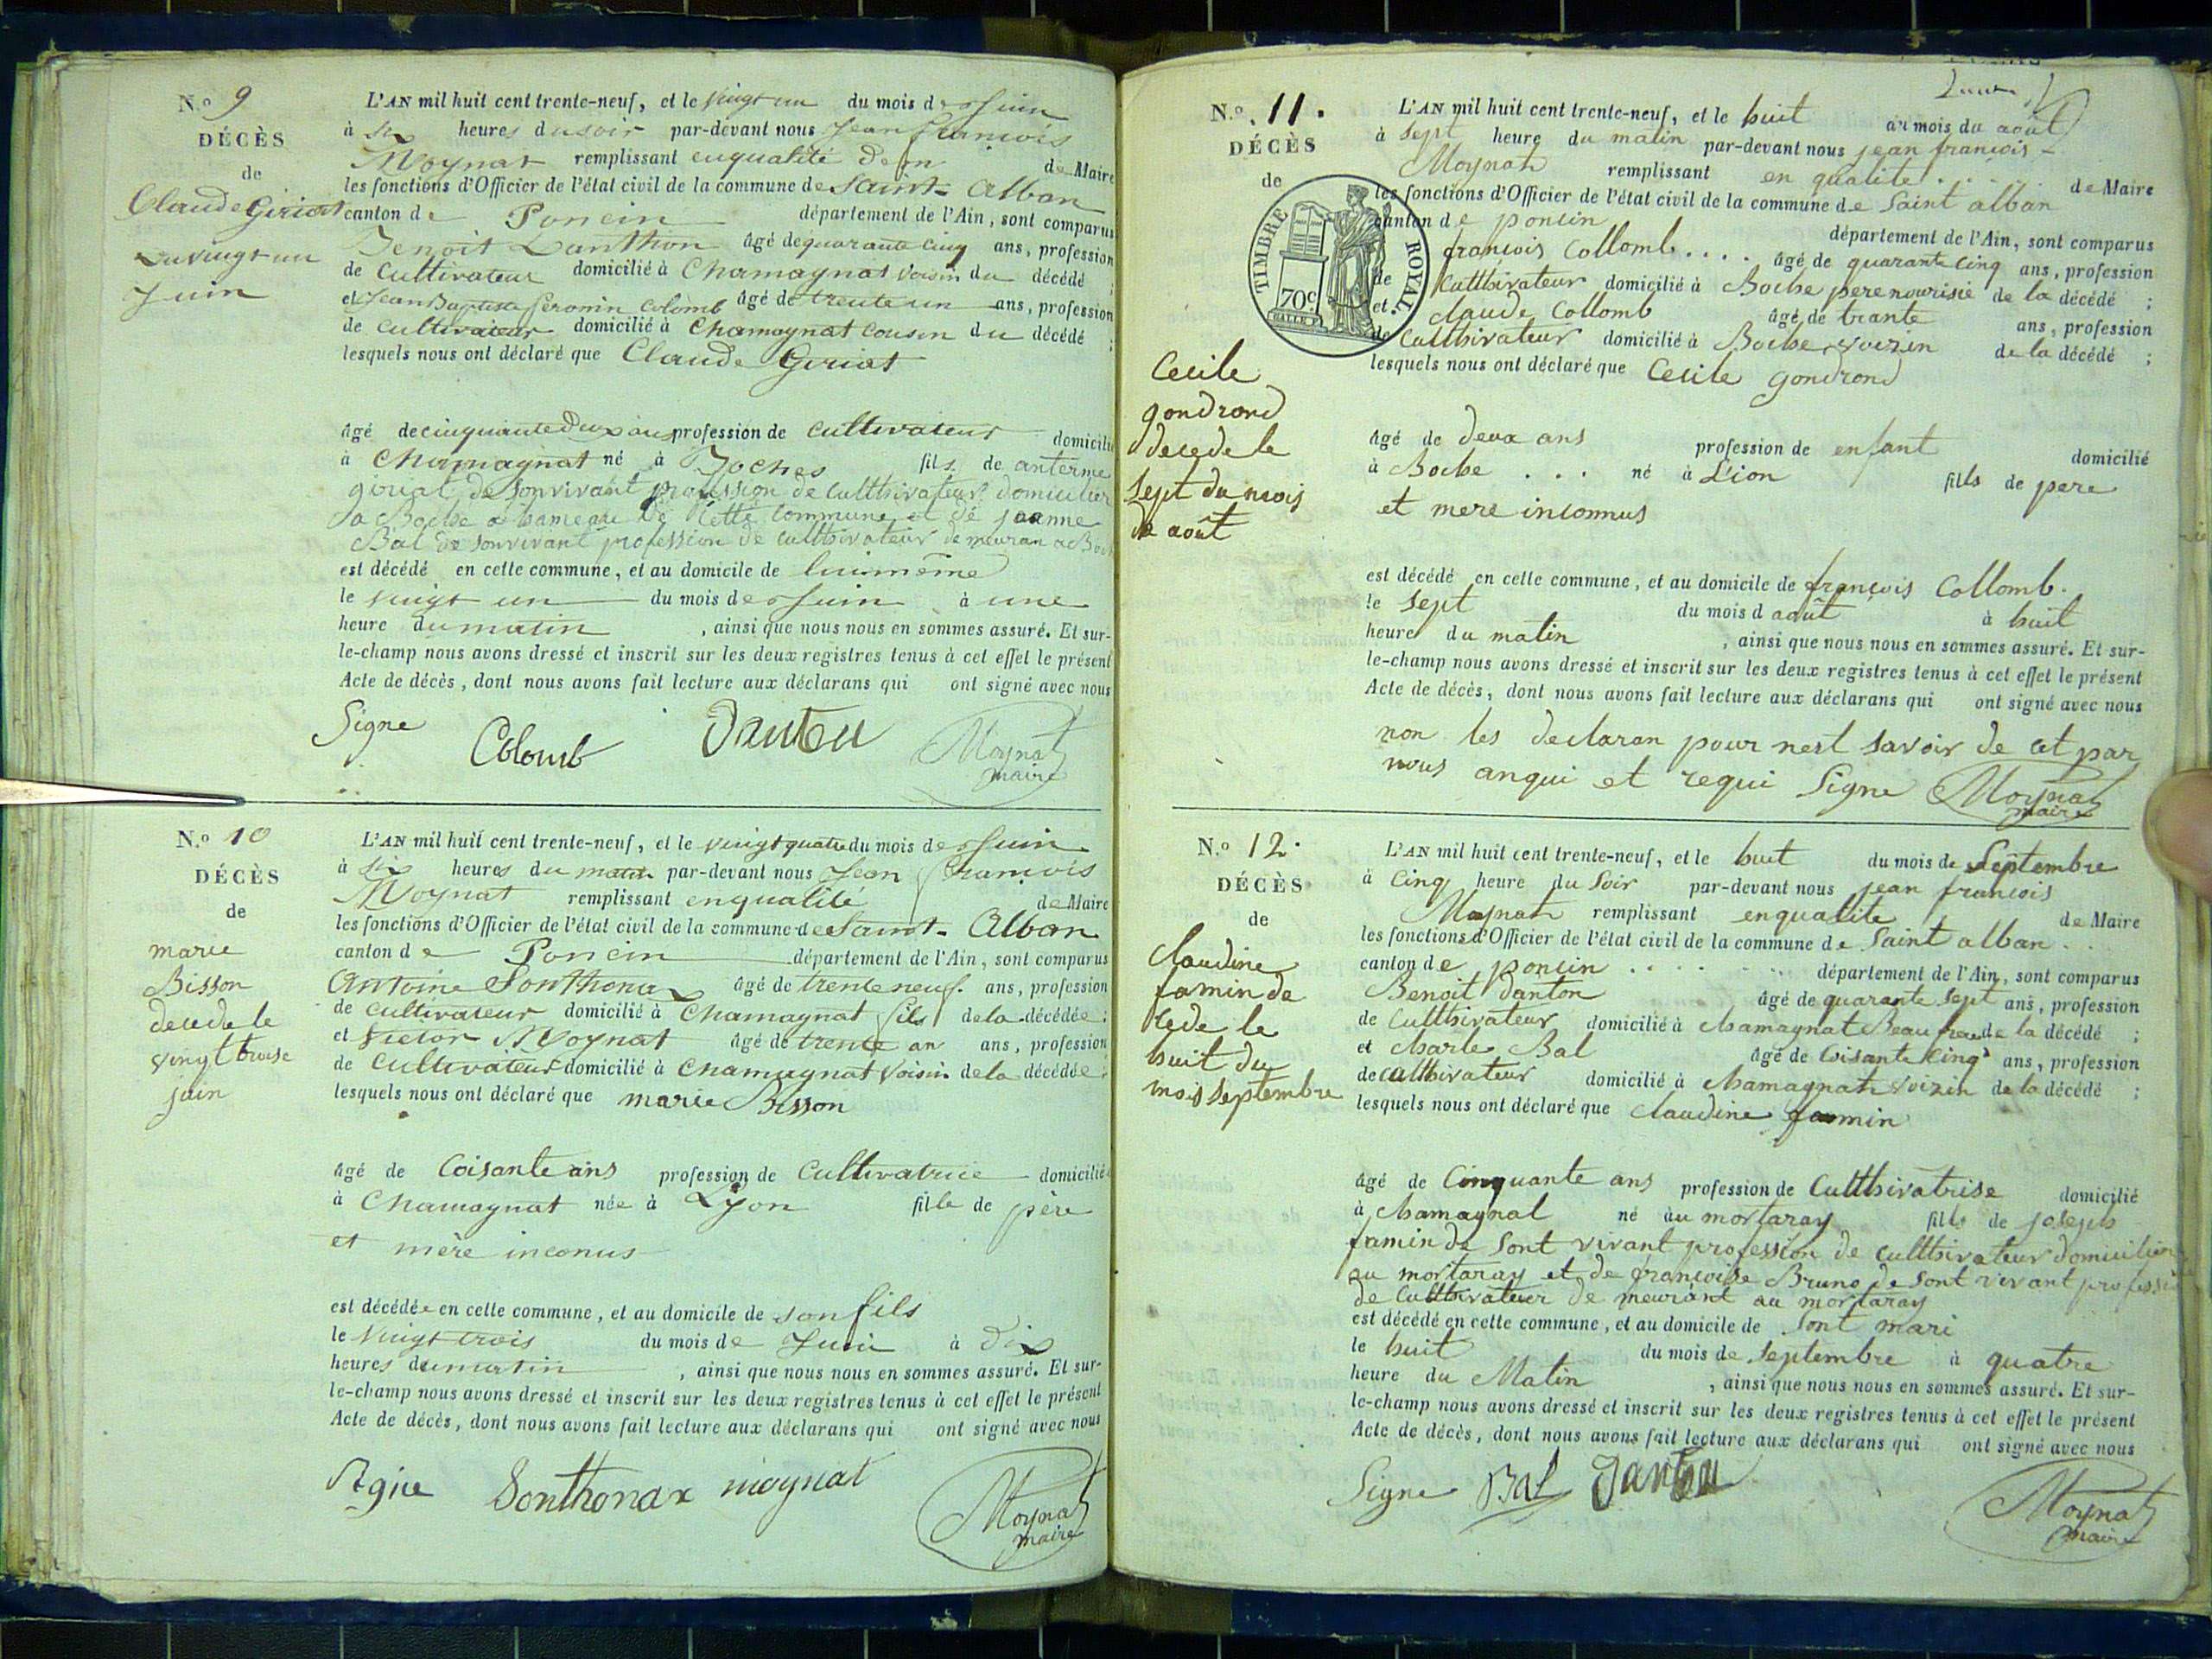 N.o 9
DÉCÈS
de
Claude Giriat
du vingt un
Juin
L'AN mil huit cent trente-neuf, et le vingt un du mois de Juin
à six heures du soir par-devant nous Jean François
Moynat remplissant en qualité de Maire
les fonctions d'Officier de l'état civil de la commune de Saint-Alban
canton de Poncin département de l'Ain, sont comparus
Benoit Danthon âgé de quarante cinq ans, profession
de Cultivateur domicilié à Chamagnat voisin du décédé ;
et Jean Baptiste Colomb âgé de trente un ans, profession
de Cultivateur domicilié à Chamagnat cousin du décédé ;
lesquels nous ont déclaré que Claude Giriat
âgé de cinquante deux ans profession de cultivateur domicilié
à Chamagnat né à Boches fils de anterme
giriat de sonvivant profession de culthivateur domicilier
a Boche a hameau de cette commune et de jeanne
Bal de sonvivant profession de culthivateur demeuran a
est décédé en cette commune, et au domicile de lui même
le vingt un du mois de Juin à une
heure du matin , ainsi que nous nous en sommes assuré. Et sur-
le-champ nous avons dressé et inscrit sur les deux registres tenus à cet effet le présent
Acte de décès, dont nous avons fait lecture aux déclarans qui ont signé avec nous
Signe Colomb Danton Moynat
maire
N.o 10
DÉCÈS
de
marie
Bisson
decede le
vingt troise
juin
L'AN mil huit cent trente-neuf, et le vingt quatre du mois de Juin
à six heures du matin par-devant nous Jean François
Moynat remplissant en qualité de Maire
les fonctions d'Officier de l'état civil de la commune de Saint-Alban
canton de Poncin département de l'Ain, sont comparus
Antoine Sonthonax âgé de trente neuf ans, profession
de cultivateur domicilié à Chamagnat fils de la décédée ;
et Victor Moynat âgé de trente an ans, profession
de Cultivateur domicilié à Chamagnat Voisin de la décédée ;
lesquels nous ont déclaré que marie Bisson
âgé de Coisante ans profession de Cultivatrice domicilié
à Chamagnat née à Lyon fille de père
et mère inconus
est décédée en cette commune, et au domicile de son fils
le Vingt trois du mois de Juin à dix
heures du matin , ainsi que nous nous en sommes assuré. Et sur-
le-champ nous avons dressé et inscrit sur les deux registres tenus à cet effet le présent
Acte de décès, dont nous avons fait lecture aux déclarans qui ont signé avec nous
Signe Sonthonax moynat Moynat
maire
N.o 11.
DÉCÈS
de
TIMBRE ROYAL
70c
Cecile
gondrond
decede le
sept du mois
de août
L'AN mil huit cent trente-neuf, et le huit du mois du août
à sept heure du matin par-devant nous jean françois
Moynat remplissant en qualite de Maire
les fonctions d'Officier de l'état civil de la commune de Saint alban
canton de poncin département de l'Ain, sont comparus
françois Collomb âgé de quarante cinq ans, profession
de Culthivateur domicilié à Boche pere nourisie de la décédé ;
et claude Collomb âgé de trante ans, profession
de Culthivateur domicilié à Boche voizin de la décédé ;
lesquels nous ont déclaré que Cecile gondrond
âgé de deux ans profession de enfant domicilié
à Boche né à Lion fills de pere
et mere inconnus
est décédé en cette commune, et au domicile de françois Collomb.
le sept du mois d août à huit
heure du matin , ainsi que nous nous en sommes assuré. Et sur-
le-champ nous avons dressé et inscrit sur les deux registres tenus à cet effet le présent
Acte de décès, dont nous avons fait lecture aux déclarans qui ont signé avec nous
non les declaran pour nest savoir de cet par
nous anqui et requi Signe Moynat
maire
N.o 12.
DÉCÈS
de
Claudine
famin de
cede le
huit du
mois septembre
L'AN mil huit cent trente-neuf, et le huit du mois de Septembre
à Cinq heure du Soir par-devant nous jean francois
Moynat remplissant enqualite de Maire
les fonctions d'Officier de l'état civil de la commune de Saint alban
canton de poncin département de l'Ain, sont comparus
Benoit Danton âgé de quarante Sept ans, profession
de Culthivateur domicilié à Chamagnat Beau frere de la décédé ;
et Charle Bal âgé de Coisante Cinq ans, profession
de Culthivateur domicilié à Chamagnat voizin de la décédé ;
lesquels nous ont déclaré que Claudine famin
âgé de Cinquante ans profession de Culthivatrise domicilié
à Chamagnat né au mortaray fills de joseph
famin de Sont vivant profession de culthivateur domicilier
au mortaray et de françoise Bruno de Sont vivant profession
de Culthivateur de meurant au mortaray
est décédé en cette commune, et au domicile de Sont mari
le huit du mois de Septembre à quatre
heure du Matin , ainsi que nous nous en sommes assuré. Et sur-
le-champ nous avons dressé et inscrit sur les deux registres tenus à cet effet le présent
Acte de décès, dont nous avons fait lecture aux déclarans qui ont signé avec nous
Signe Bal Danton Moynat
maire